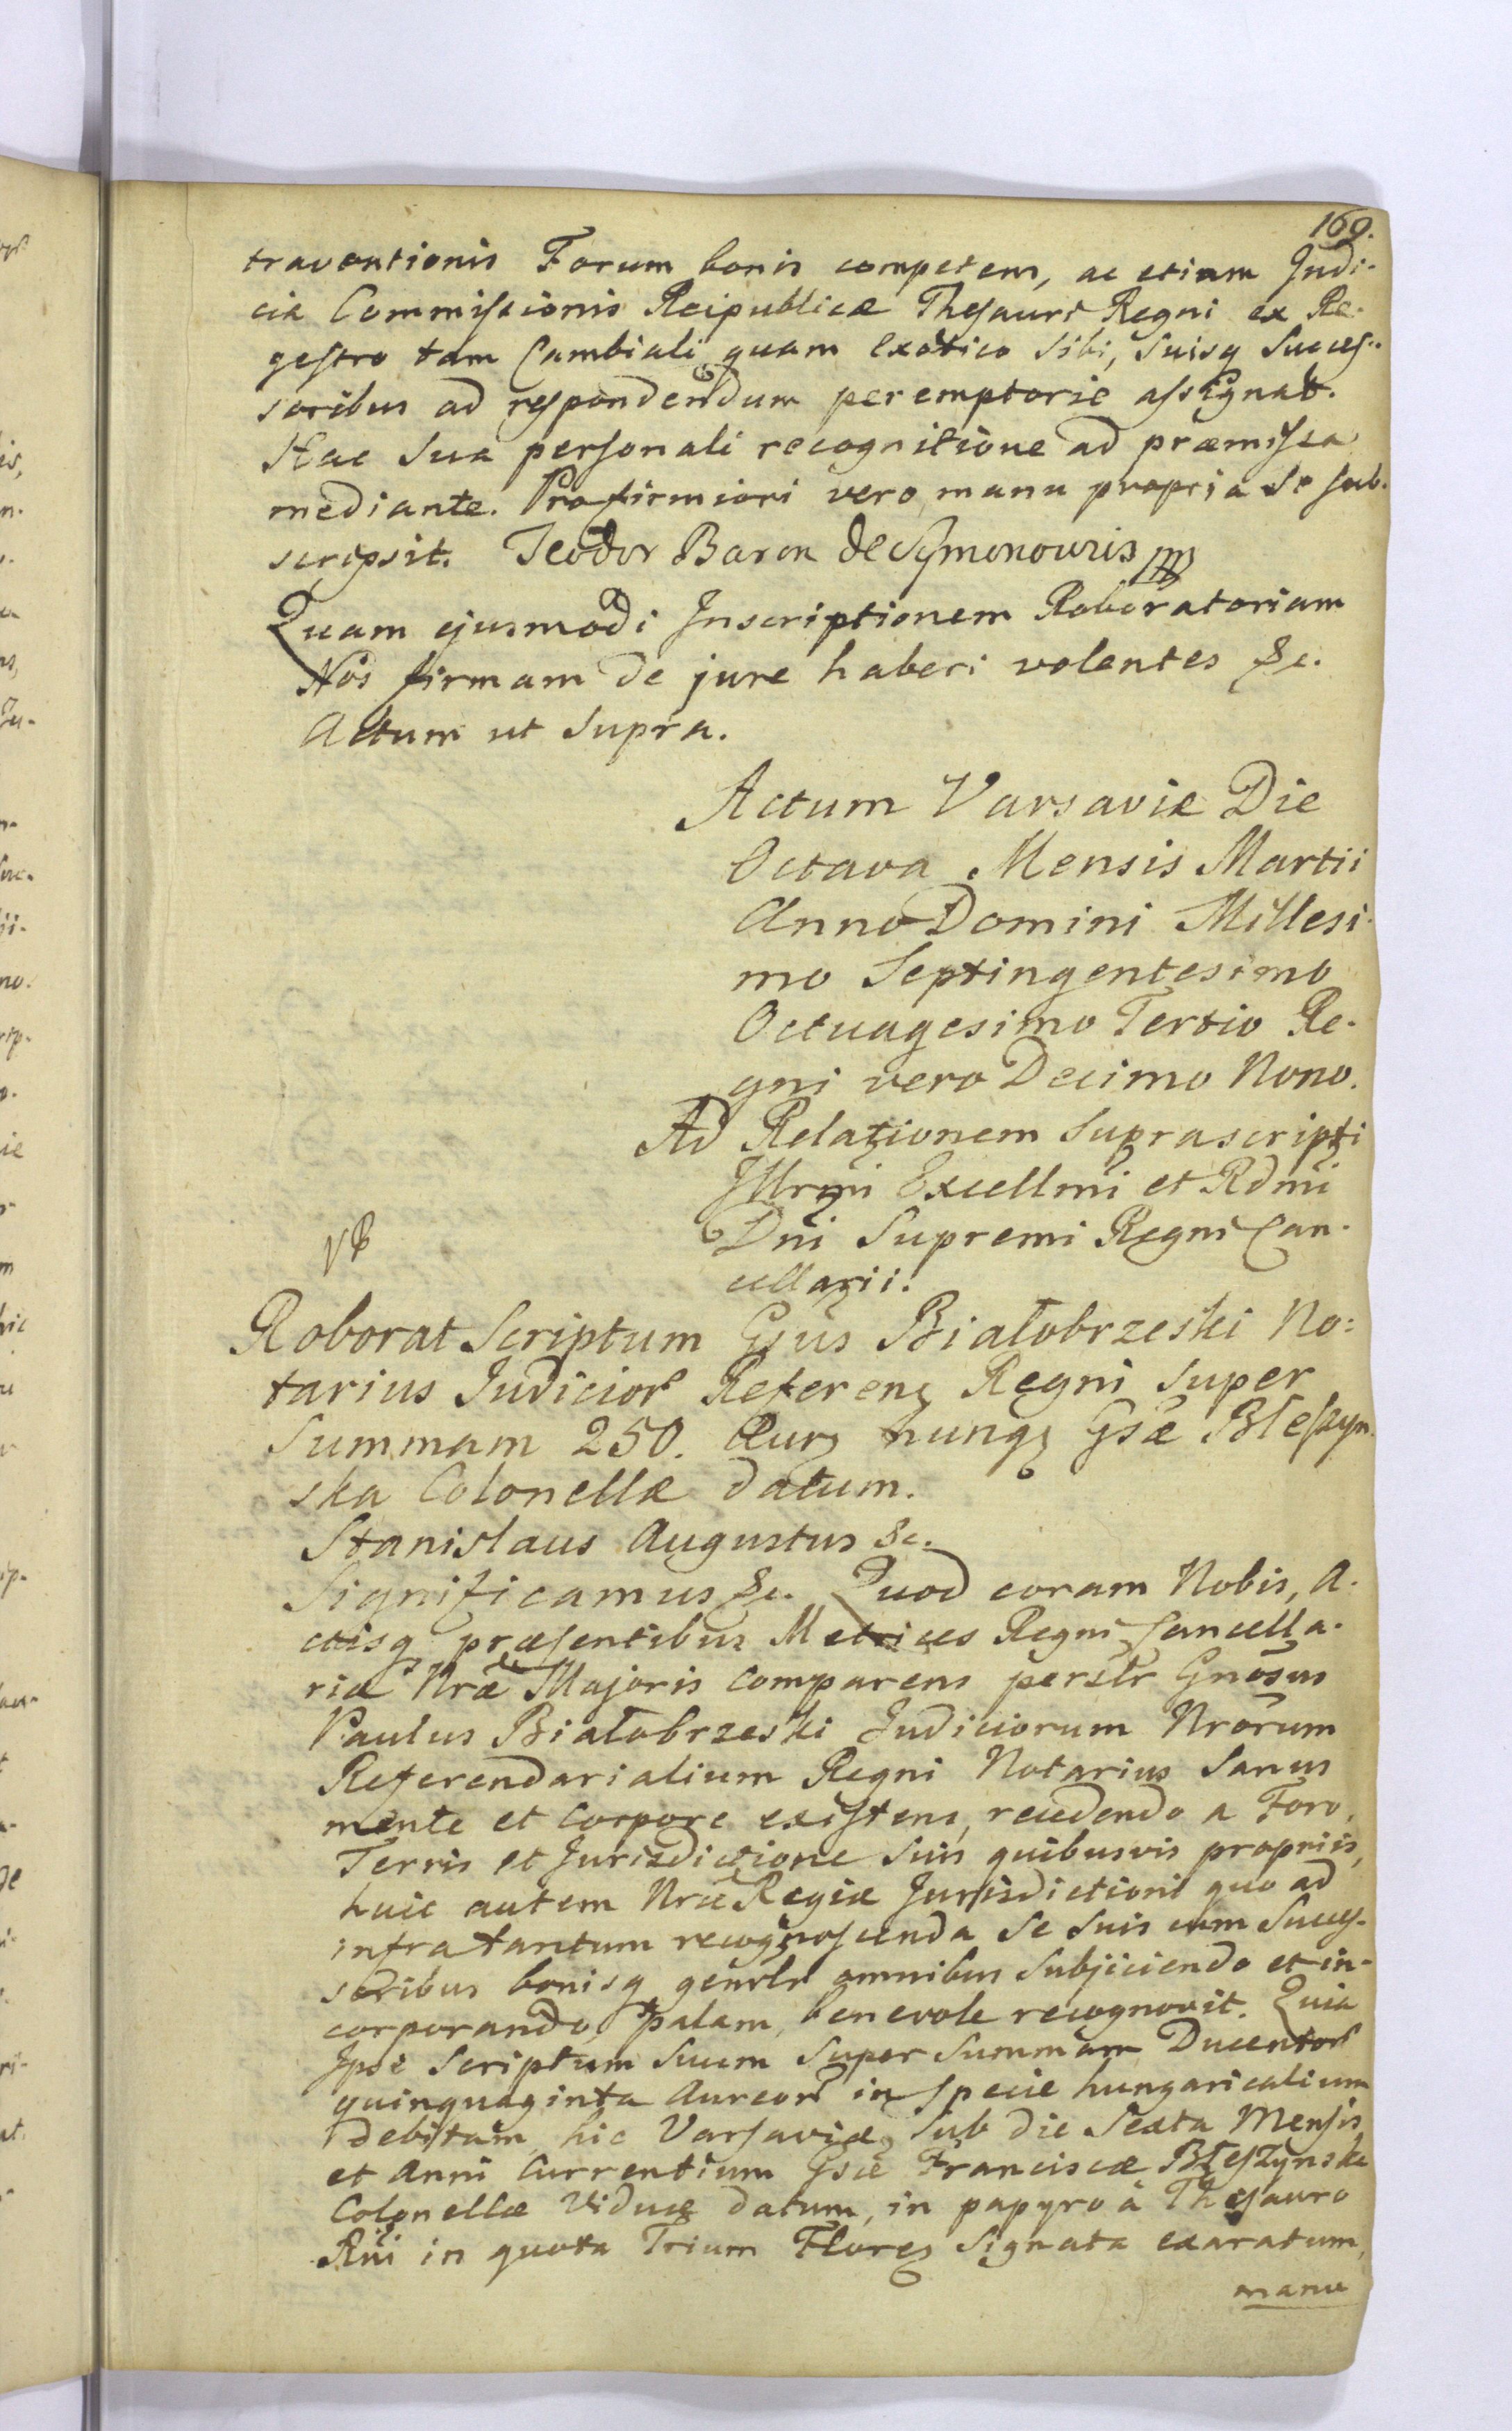 169.
traventionis Forum bonis competens, ac etiam Judi-
cia Commissionis Reipublicæ Thesauri Regni ex Re-
gestro tam Cambiali quam Exotico Sibi, Suisq Succes-
soribus ad respondendum peremptorie assignat.
Hac Sua personali recognitione ad præmissa
mediante. Pro firmiori vero manu propria se sub-
scripsit. Teodor Baron de Symonowis mp
Quam ejusmodi Inscriptionem Roboratoriam
Nos firmam de jure haberi volentes &c.
Actum ut Supra.
Actum Varsaviæ Die
Octava Mensis Martii
Anno Domini Millesi-
mo Septingentesimo
Octuagesimo Tertio Re-
gni vero Decimo Nono.
Ad Relationem Suprascripti
Illrmi Excellmi et Rdmi
Dni Supremi Regni Can-
cellarii.
Roborat Scriptum Gsus Białobrzeski No:
tarius Judicior Referen Regni Super
Summam 250. Aur hung Gsæ Błeszyn-
ska Colonellæ datum.
Stanislaus Augustus &c.
Significamus &c. Quod coram Nobis, A-
ctisq præsentibus Metrices Regni Cancella-
riæ Nræ Majoris Comparens persłr Gnosus
Paulus Białobrzeski Judiciorum Nrorum
Referendarialium Regni Notarius Sanus
mente et Corpore existens, recedendo a Foro,
Terris et Jurisdictione Suis quibusvis propriis,
huic autem Nræ Regiæ Jurisdictioni quo ad
infra tantum recognoscenda Se Suis cum Succes-
soribus bonisq genrlr omnibus Subjiciendo et in-
corporando, palam, benevole recognovit. Quia
Ipse Scriptum Suum Super Summam Ducentor
quinquaginta Aureor in Specie hungaricalium
debitam, hic Varsaviæ Sub die Sexta Mensis
et Anni Currentium Gsæ Franciscæ Błeszynska
Colonellæ Viduæ datum, in papyro à Thesauro
Rni in quota Trium Flore Signata exaratum,
manu